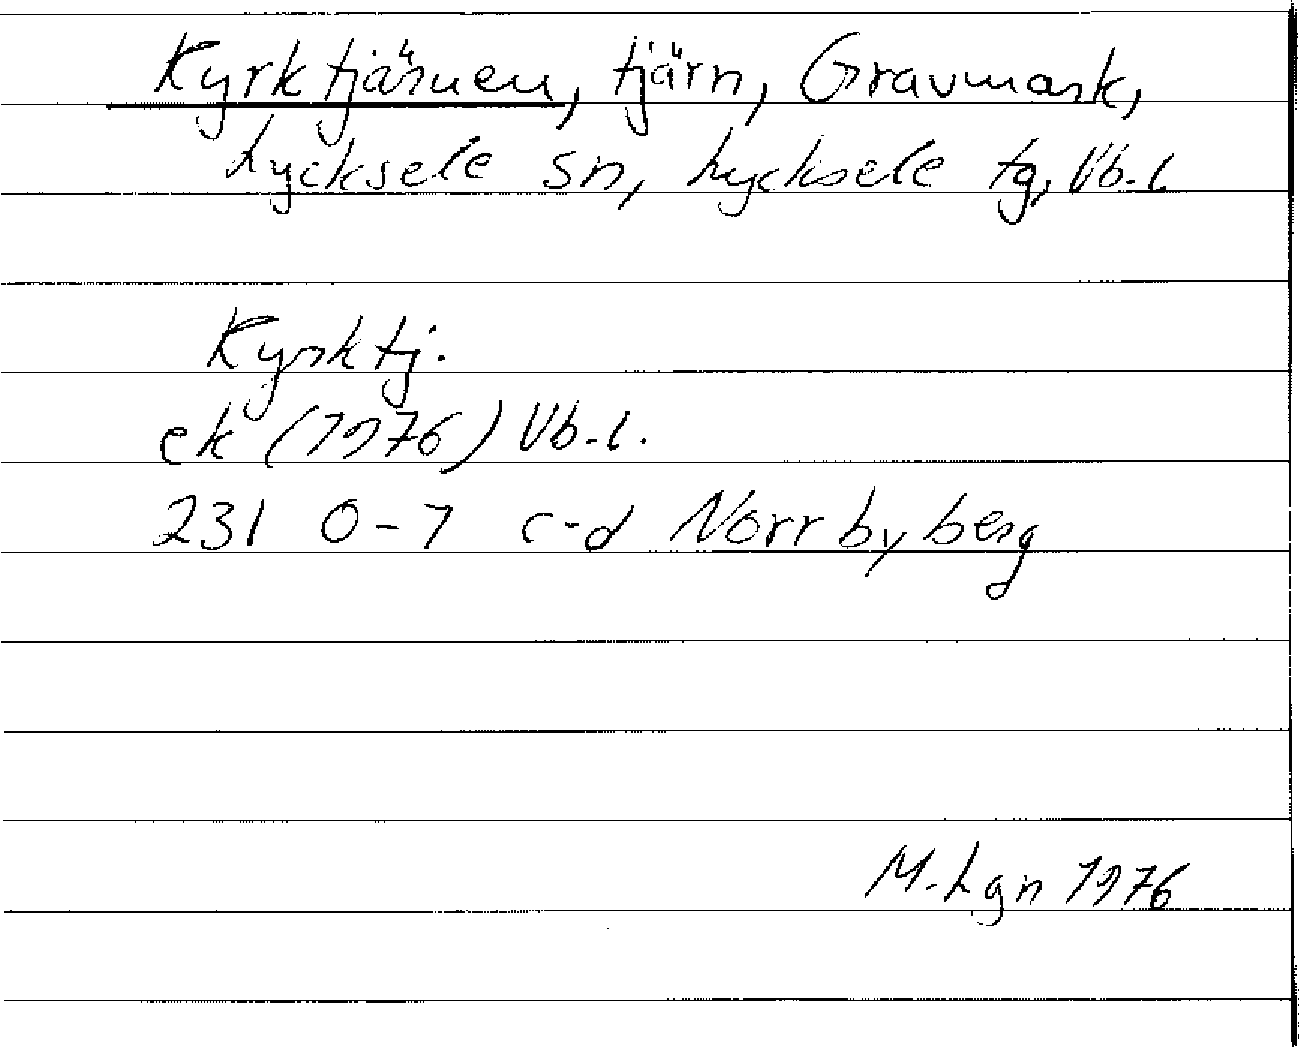 Kyrktjärnen, tjärn, Gravmark,
Lycksele sn, Lycksele tg, Vb.l.
Kyrktj.
ek (1976) Vb.l.
231 0-7 c-d Norrbyberg
M.Lgn 1976